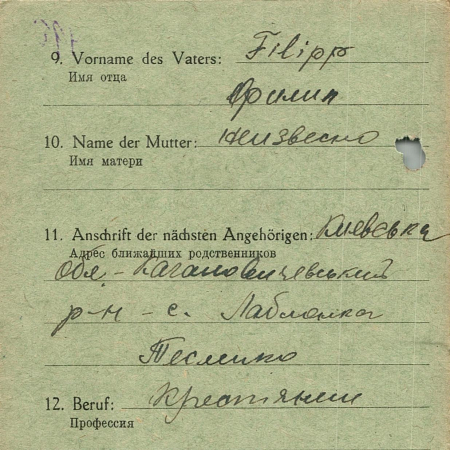 9. Vorname des Vaters: Filipp
Имя отца
Филип
10. Name der Mutter: Неизвесно
Имя матери
11. Anschrift der nächsten Angehörigen: Киевська
Адрес ближайших родственников
обл - Кагановичевський
р-н - с.
12. Beruf: Крестянин
Профессия